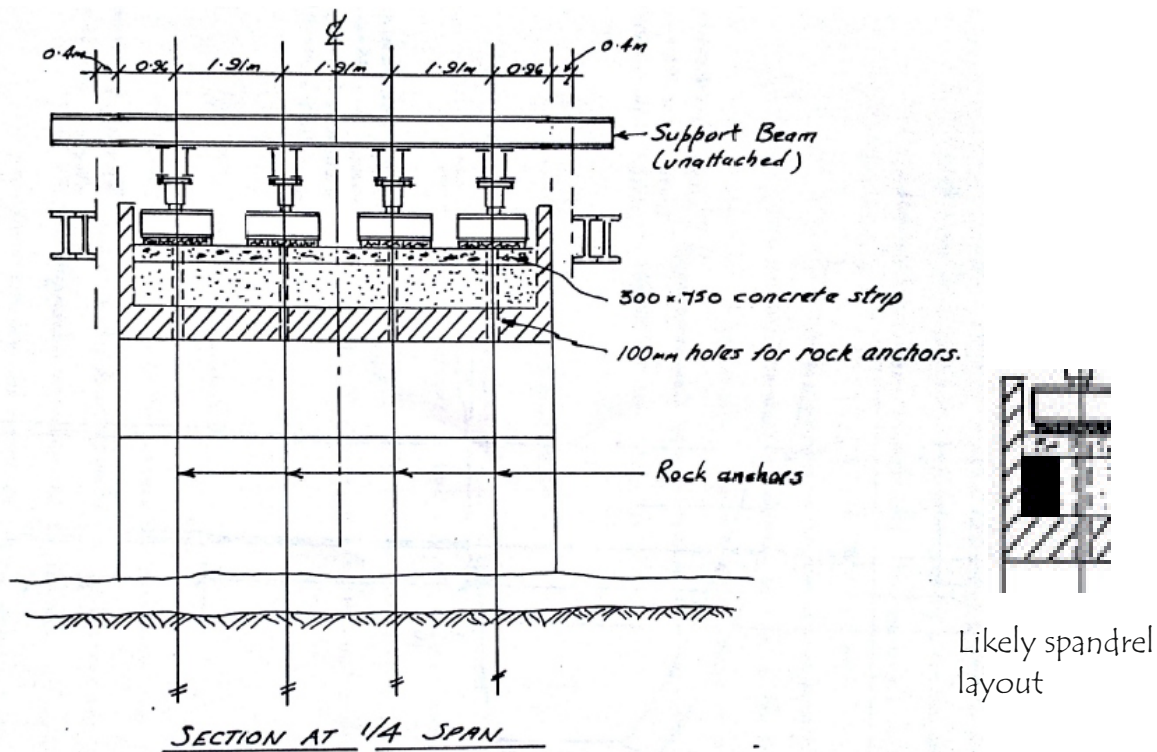 ℄
0.4m
0.96
1.91m
1.91m
1.91m
0.96
0.4m
Support Beam
(unattached)
300 x .750 concrete strip
100mm holes for rock anchors.
Rock anchors
SECTION AT 1/4 SPAN
Likely spandrel
layout